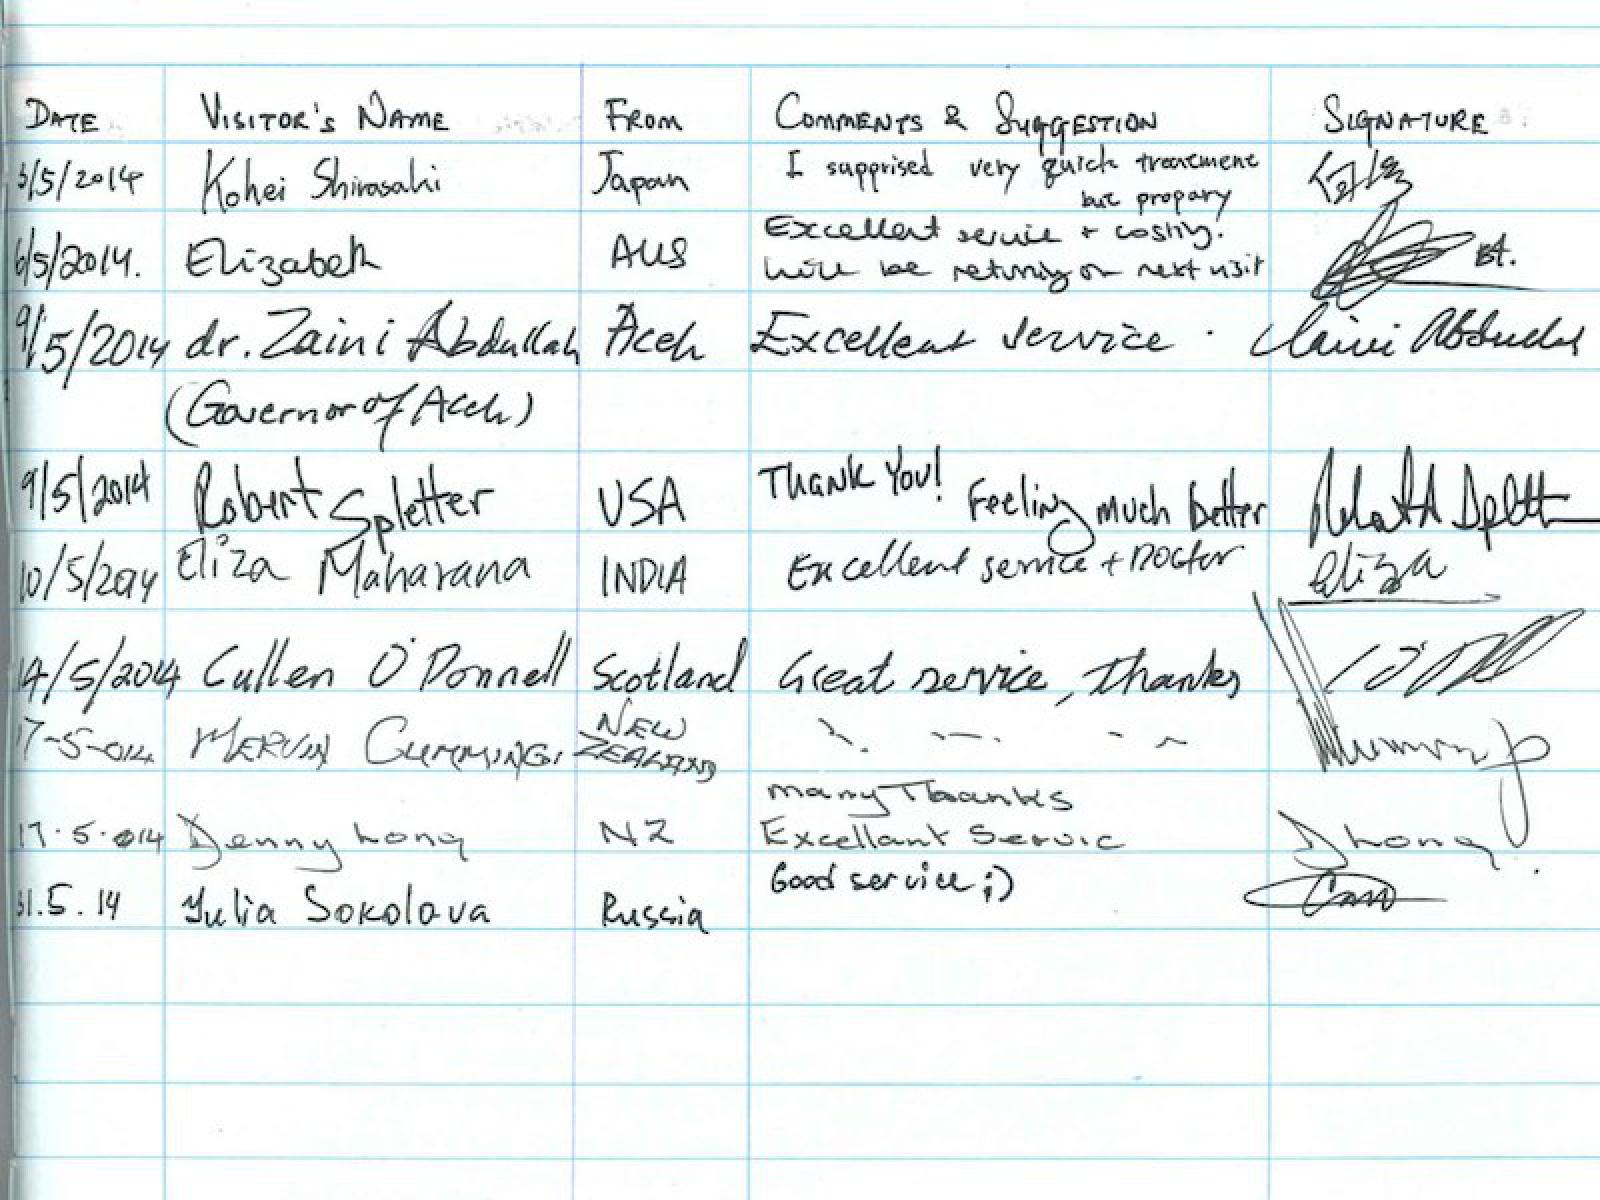 DATE VISITOR'S NAME FROM COMMENTS & SUGGESTION SIGNATURE
3/5/2014 Kohei Shirasaki Japan I supprised very quick treatment
but propary
6/5/2014. Elizabeth AUS Excellent service + costing.
Will be returning on next visit
9/5/2014 dr. Zaini Abdullah Aceh Excellent service.
(Governor of Aceh)
9/5/2014 Robert Spletter USA THANK YOU! Feeling much better
10/5/2014 Eliza Maharana INDIA Excellent service + Doctor Eliza
14/5/2014 Cullen O'Donnell Scotland Great service, thanks
17-5-014 MERVIN CUMMINGS NEW
ZEALAND
many Thanks
17.5.014 Denny Long NZ Excellant Servic DLong.
Good service ;)
31.5.14 Yulia Sokolova Russia